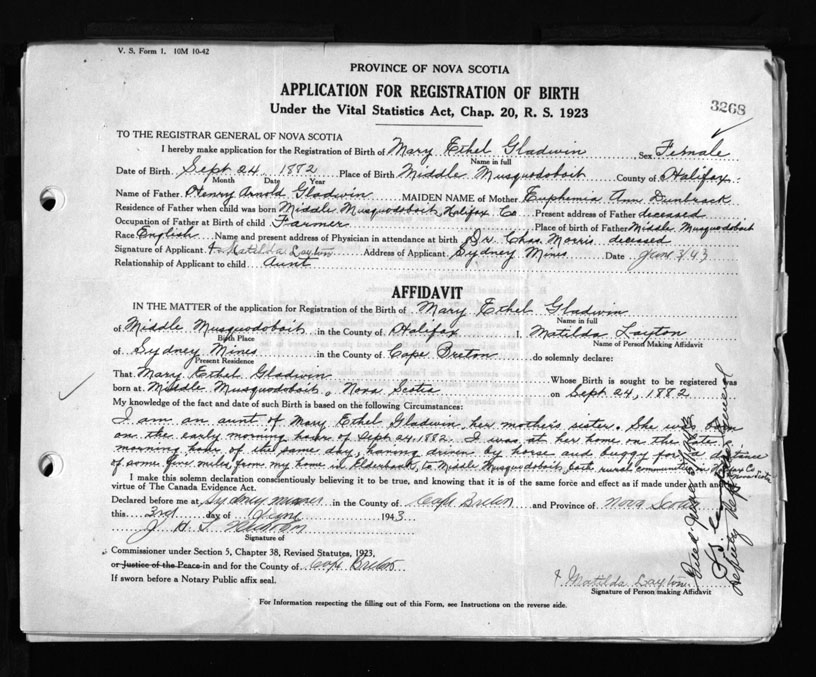 V. S. Form 1. 10M 10-42
PROVINCE OF NOVA SCOTIA
APPLICATION FOR REGISTRATION OF BIRTH
Under the Vital Statistics Act, Chap. 20, R. S. 1923
3268
TO THE REGISTRAR GENERAL OF NOVA SCOTIA
I hereby make application for the Registration of Birth of Mary Ethel Gladwin Sex Female
Name in full
Date of Birth Sept 24, 1882 Place of Birth Middle Musquodoboit County of Halifax
Month Date Year
Name of Father Henry Arnold Gladwin MAIDEN NAME of Mother Euphemia Ann Dunbrack
Residence of Father when child was born Middle Musquodoboit, Halifax Co Present address of Father deceased
Occupation of Father at Birth of child Farmer Place of birth of Father Middle Musquodoboit
Race English Name and present address of Physician in attendance at birth Dr. Chas. Morris deceased
Signature of Applicant Matilda Layton Address of Applicant Sydney Mines Date June 3/43
Relationship of Applicant to child Aunt
AFFIDAVIT
IN THE MATTER of the application for Registration of the Birth of Mary Ethel Gladwin
Name in full
of Middle Musquodoboit in the County of Halifax I, Matilda Layton
Birth Place Name of Person Making Affidavit
of Sydney Mines in the County of Cape Breton do solemnly declare:
Present Residence
That Mary Ethel Gladwin Whose Birth is sought to be registered was
born at Middle Musquodoboit, Nova Scotia on Sept 24, 1882
My knowledge of the fact and date of such Birth is based on the following Circumstances:
I am an aunt of Mary Ethel Gladwin, her mother's sister. She was born
on the early morning hour of Sept 24, 1882. I was at her home on the late
morning hour of the same day, having driven by horse and buggy for a distance
of some five miles, from my home in Elderbank, to Middle Musquodoboit, both rural communities in Halifax Co Nova Scotia
I make this solemn declaration conscientiously believing it to be true, and knowing that it is of the same force and effect as if made under oath and
virtue of The Canada Evidence Act.
Declared before me at Sydney mines in the County of Cape Breton and Province of Nova Scotia
this 3rd day of June 1943
J. H.
Signature of
Commissioner under Section 5, Chapter 38, Revised Statutes, 1923,
or Justice of the Peace in and for the County of Cape Breton
If sworn before a Notary Public affix seal.
Matilda Layton
Signature of Person making Affidavit
For Information respecting the filling out of this Form, see Instructions on the reverse side.
Filed June
Deputy Registrar General